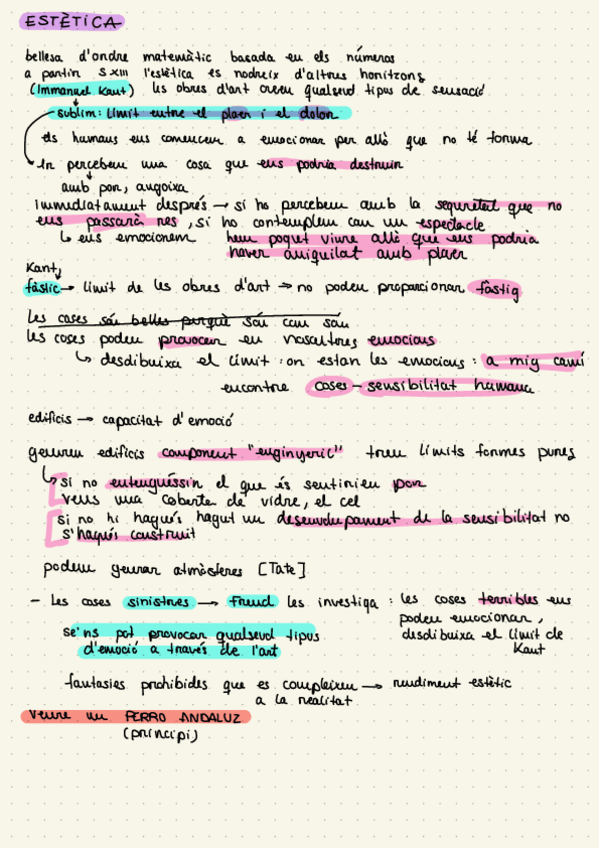 ESTÈTICA
bellesa d'ordre matemàtic basada en els números
a partir S XIII l'estètica es nodreix d'altres horitzons
(Immanuel Kant) les obres d'art creen qualsevol tipus de sensació
sublim: límit entre el plaer i el dolor
els humans ens comencem a emocionar per allò que no té forma
In percebem una cosa que ens podria destruir
amb por, angoixa
immediatament després → si ho percebem amb la seguretat que no
ens passarà res, si ho contemplem com un espectacle
↳ ens emocionem hem pogut viure allò que ens podria
haver aniquilat amb plaer
Kant
fàstic → límit de les obres d'art → no poden proporcionar fàstig
Les coses són belles perquè són com són
les coses poden provocar en nosaltres emocions
↳ desdibuixa el límit: on estan les emocions: a mig camí
encontre coses - sensibilitat humana
edificis → capacitat d'emoció
generen edificis component "enginyeril" treu límits formes pures
si no entenguéssin el que és sentirien por
veus una coberta de vidre, el cel
si no hi hagués hagut un desenvolupament de la sensibilitat no
s'hagués construit
podem generar atmòsferes [Tate]
- Les coses sinistres → Freud les investiga: les coses terribles ens
poden emocionar,
desdibuixa el límit de
Kant
se'ns pot provocar qualsevol tipus
d'emoció a través de l'art
fantasies prohibides que es compleixen → rendiment estètic
a la realitat
Veure un PERRO ANDALUZ
(principi)